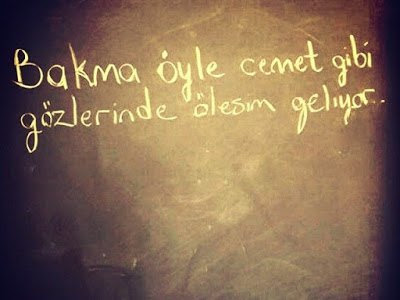 Bakma öyle cennet gibi
gözlerinde ölesim geliyor.